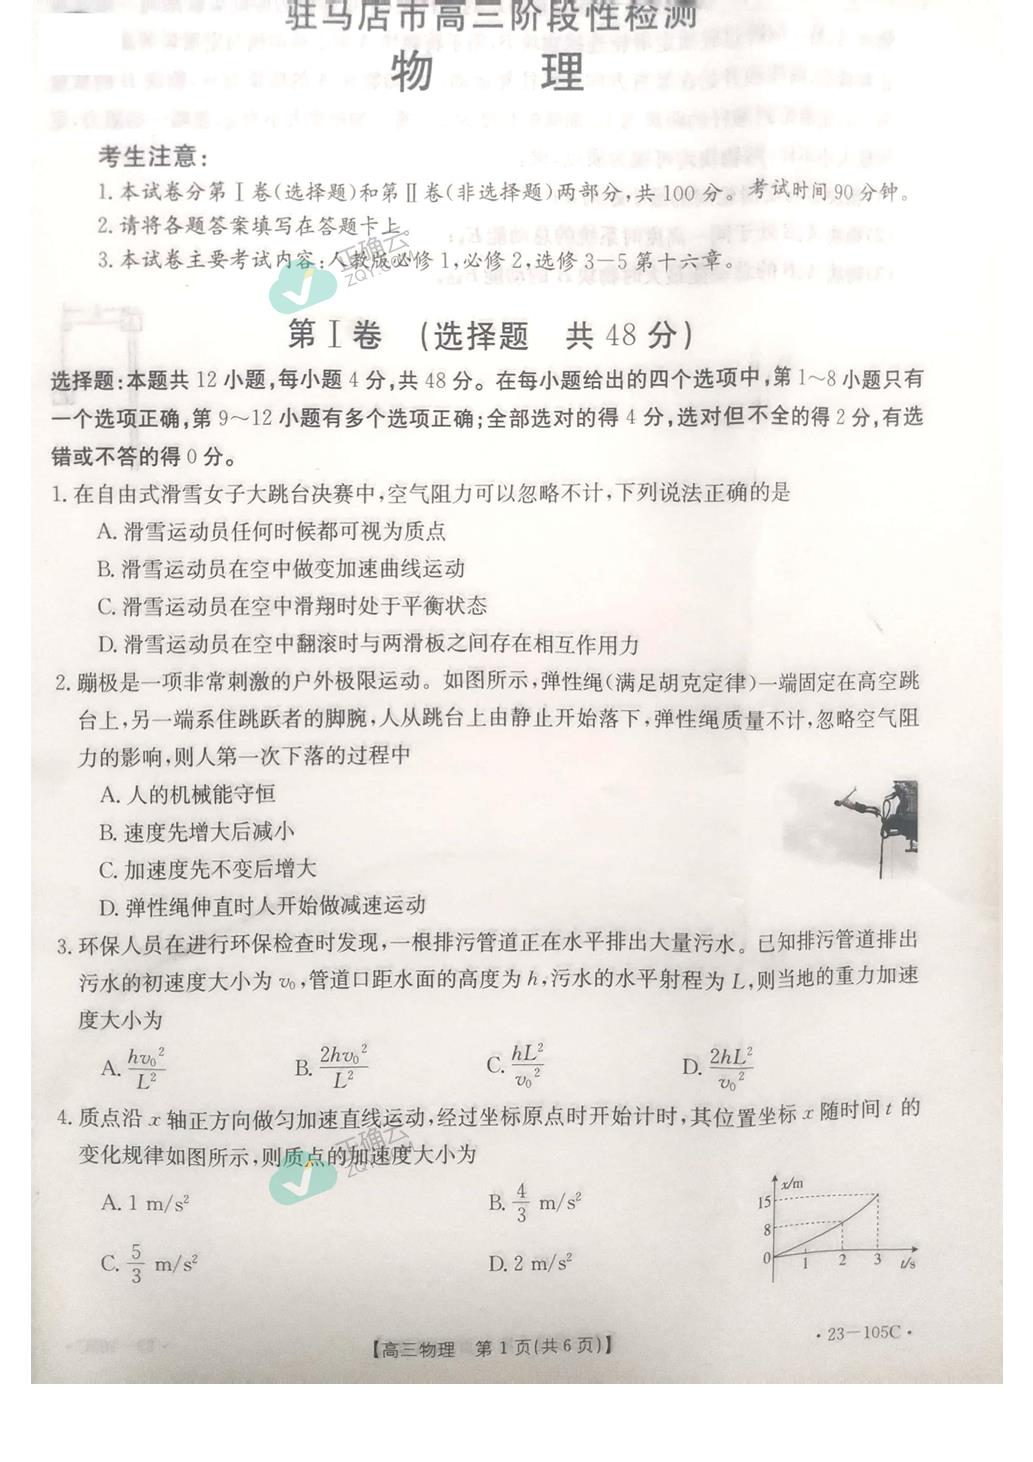 驻马店市高三阶段性检测
物 理
考生注意:
1.本试卷分第Ⅰ卷(选择题)和第Ⅱ卷(非选择题)两部分,共100分。考试时间90分钟。
2.请将各题答案填写在答题卡上。
3.本试卷主要考试内容:人教版必修1,必修2,选修3-5第十六章。
正确云
ZQY.COM
第Ⅰ卷 (选择题 共48分)
选择题:本题共12小题,每小题4分,共48分。在每小题给出的四个选项中,第1~8小题只有
一个选项正确,第9~12小题有多个选项正确;全部选对的得4分,选对但不全的得2分,有选
错或不答的得0分。
1.在自由式滑雪女子大跳台决赛中,空气阻力可以忽略不计,下列说法正确的是
A.滑雪运动员任何时候都可视为质点
B.滑雪运动员在空中做变加速曲线运动
C.滑雪运动员在空中滑翔时处于平衡状态
D.滑雪运动员在空中翻滚时与两滑板之间存在相互作用力
2.蹦极是一项非常刺激的户外极限运动。如图所示,弹性绳(满足胡克定律)一端固定在高空跳
台上,另一端系住跳跃者的脚腕,人从跳台上由静止开始落下,弹性绳质量不计,忽略空气阻
力的影响,则人第一次下落的过程中
A.人的机械能守恒
B.速度先增大后减小
C.加速度先不变后增大
D.弹性绳伸直时人开始做减速运动
3.环保人员在进行环保检查时发现,一根排污管道正在水平排出大量污水。已知排污管道排出
污水的初速度大小为v₀,管道口距水面的高度为h,污水的水平射程为L,则当地的重力加速
度大小为
A. hv₀²/L² B. 2hv₀²/L² C. hL²/v₀² D. 2hL²/v₀²
4.质点沿x轴正方向做匀加速直线运动,经过坐标原点时开始计时,其位置坐标x随时间t的
变化规律如图所示,则质点的加速度大小为
正确云
ZQY.COM
A.1 m/s² B. 4/3 m/s²
C. 5/3 m/s² D.2 m/s²
x/m
15
8
0 1 2 3 t/s
·23-105C·
【高三物理 第1页(共6页)】